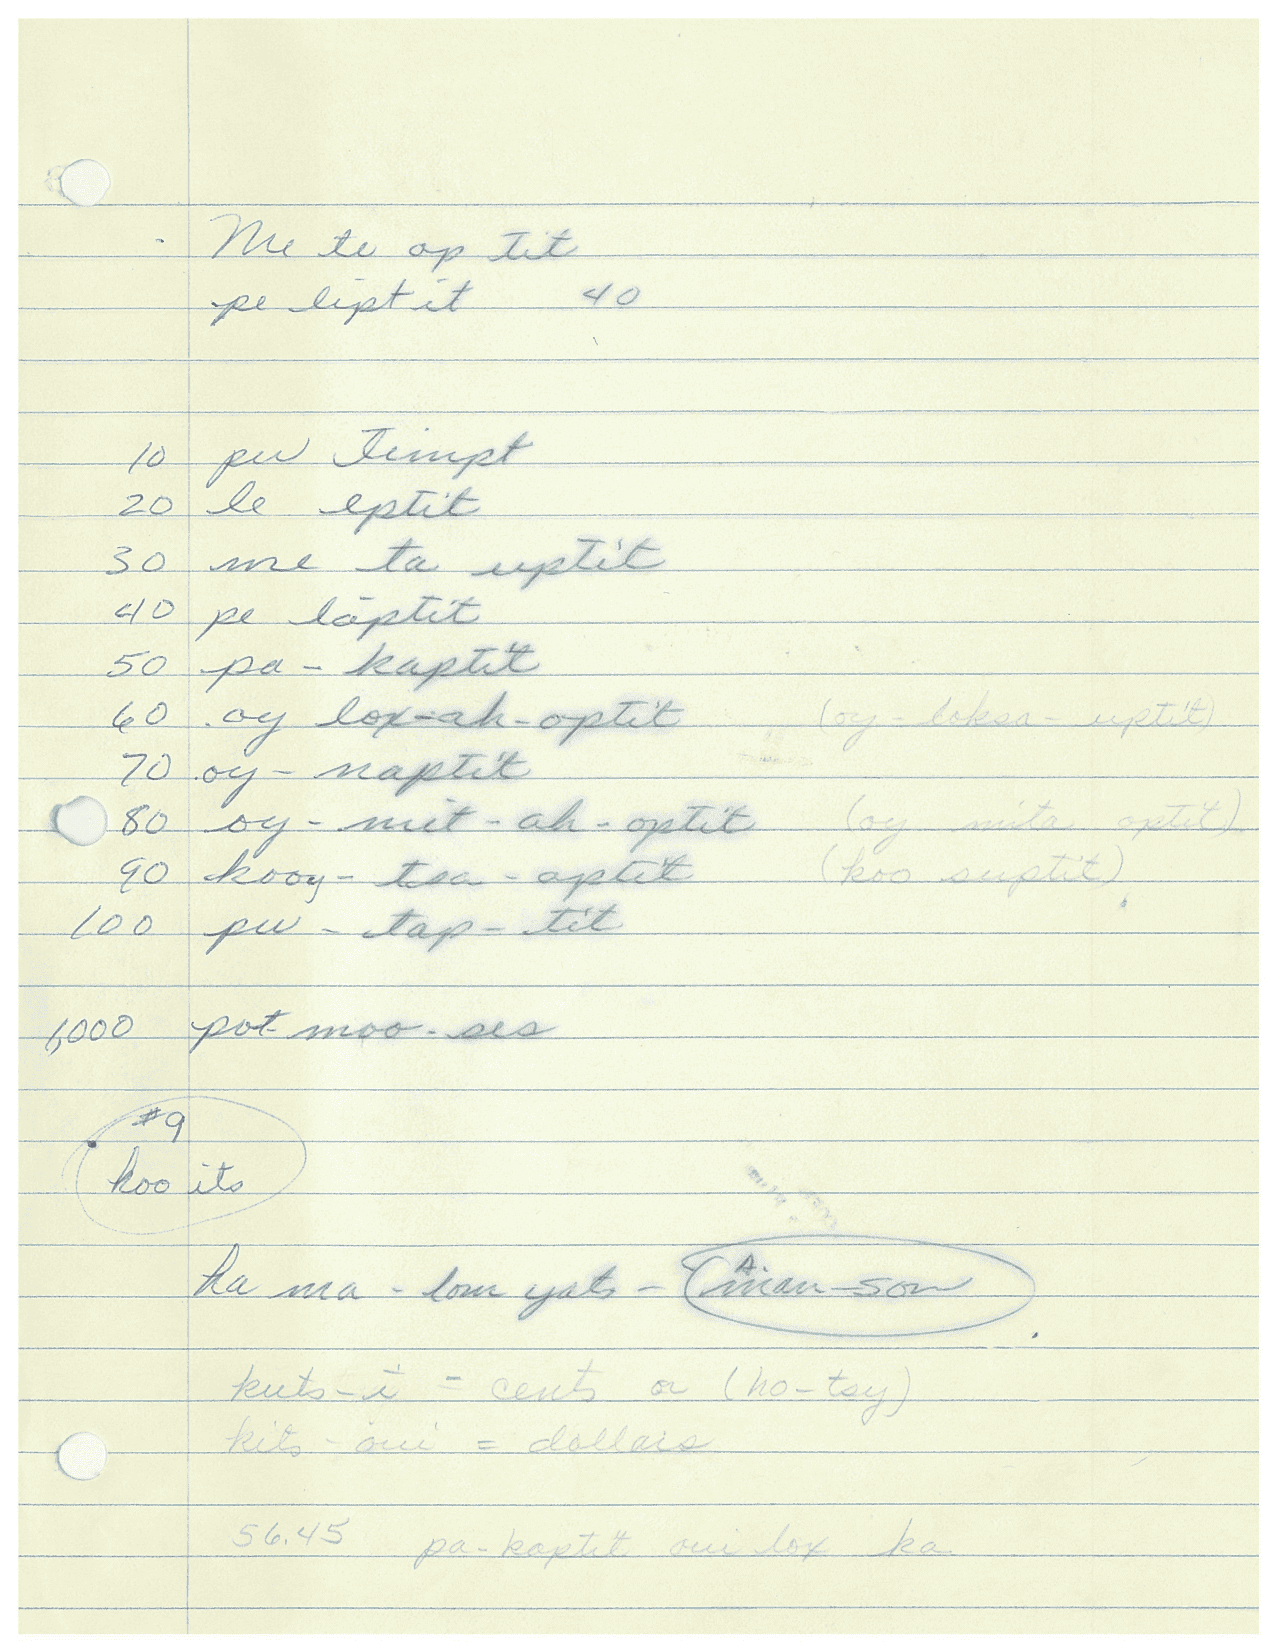 Me te op tit
pe liptit 40
10 pu timpt
20 le eptit
30 me ta uptit
40 pe lăptit
50 pa - kaptit
60 oy lox-ah-optit (oy - loksa - uptit)
70 oy - naptit
80 oy - mit - ah - optit (oy mita optit)
90 kooy - tsa - aptit (koo suptit)
100 pu - tap - tit
1,000 pot moo - ses
#9
koo its
ha ma - lom yats -
kuts - i = cents or (ho - tsy)
kits - oui = dollars
56.45 pa - kaptit oui lox ka